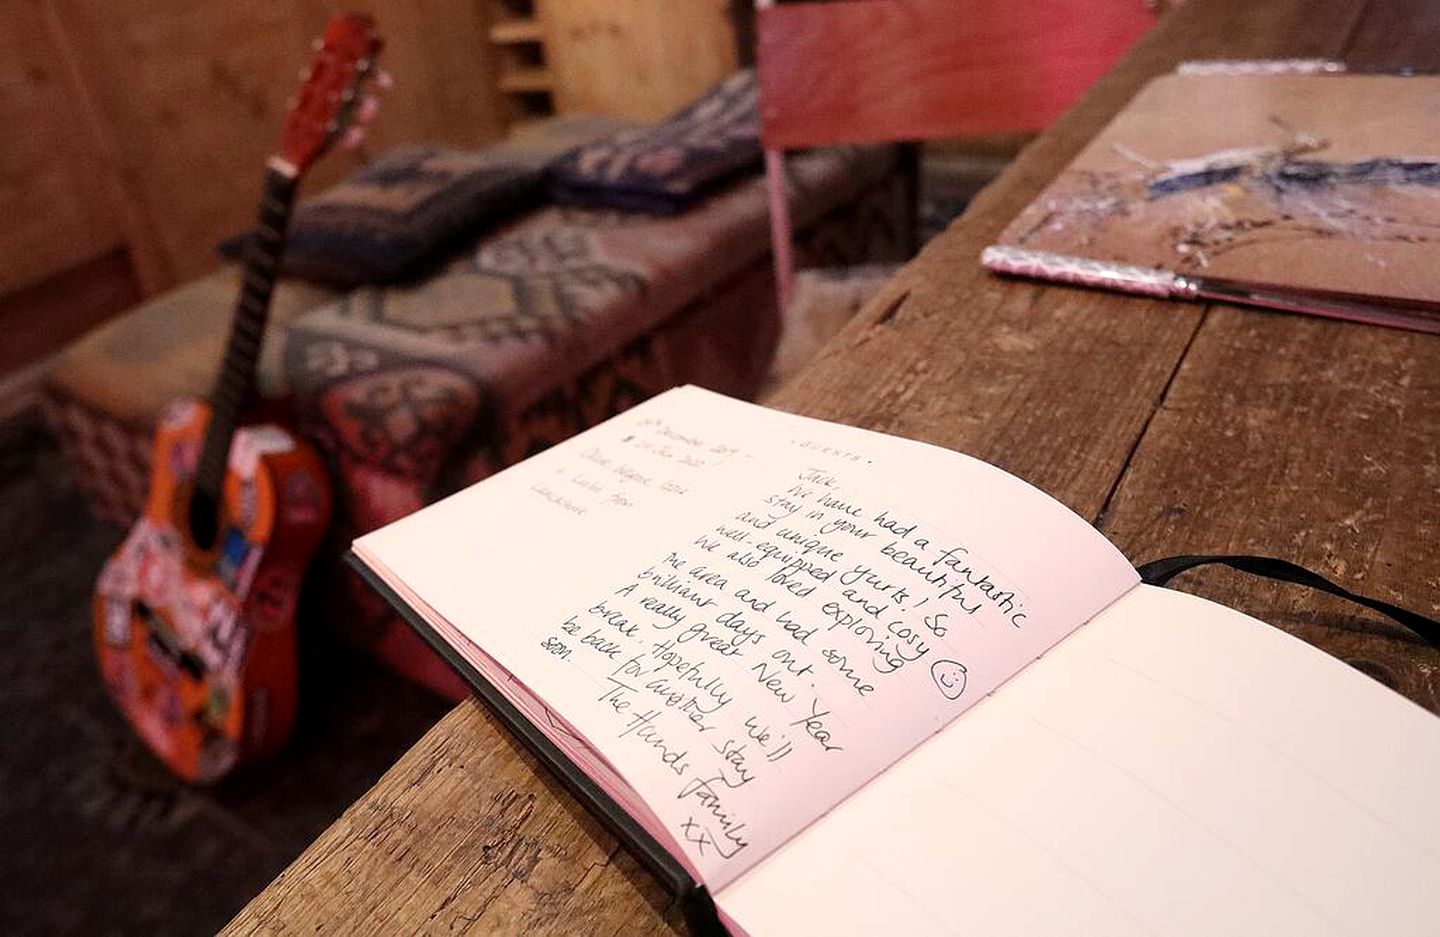 . GUESTS .
30th December 2019 -
2nd Jan 2020
from
Lancashire
Jack,
We have had a fantastic
stay in your beautiful
and unique yurts! So
well-equipped and cosy
We also loved exploring
the area and had some
brilliant days out.
A really great New Year
break. Hopefully we'll
be back for another stay
soon.
The Hands Family
xx